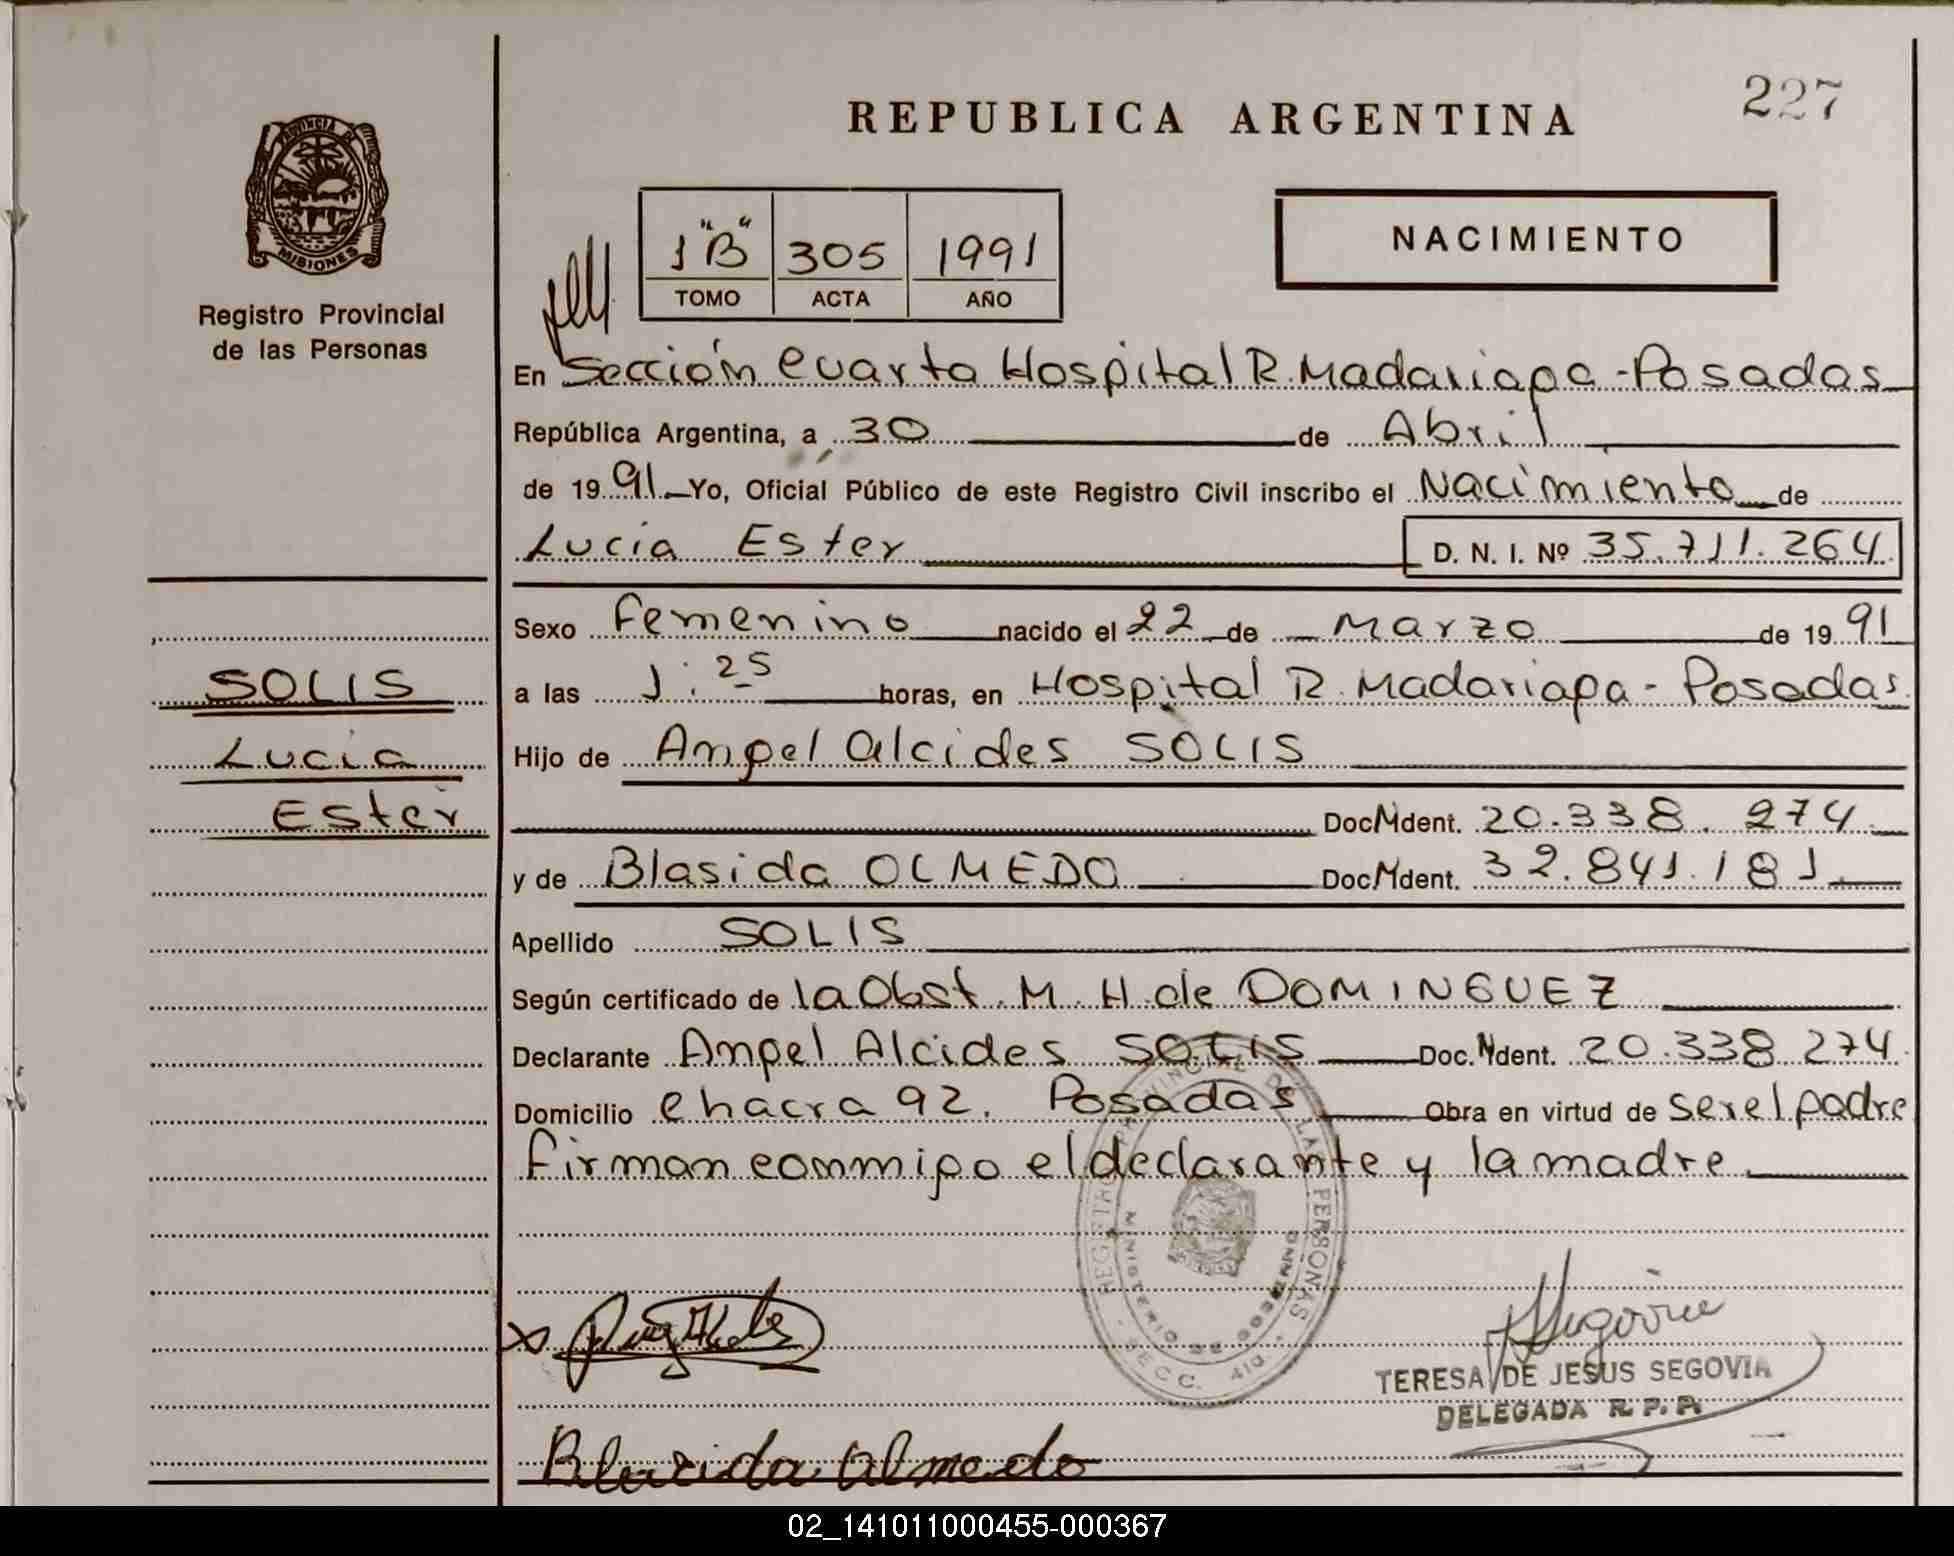 REPUBLICA ARGENTINA
227
PROVINCIA DE
MISIONES
Registro Provincial
de las Personas
1 "B" 305 1991
TOMO ACTA AÑO
NACIMIENTO
En Sección Cuarta Hospital R. Madariaga - Posadas
República Argentina, a 30 de Abril
de 1991 Yo, Oficial Público de este Registro Civil inscribo el Nacimiento de
Lucia Ester D. N. I. Nº 35.711.264
Sexo Femenino nacido el 22 de Marzo de 1991
a las 1:25 horas, en Hospital R. Madariaga - Posadas
Hijo de Angel Alcides SOLIS
Doc. Ident. 20.338.274
y de Blasida OLMEDO Doc. Ident. 32.841.181
Apellido SOLIS
Según certificado de la Obst. M. H. de DOMINGUEZ
Declarante Angel Alcides SOLIS Doc. Ident. 20.338.274
Domicilio Chacra 92. Posadas Obra en virtud de ser el padre
Firman conmigo el declarante y la madre
SOLIS
Lucia
Ester
REGISTRO PROVINCIAL DE LAS PERSONAS
MINISTERIO DE GOBIERNO
SECC. 4ta.
Segovia
TERESA DE JESUS SEGOVIA
DELEGADA R. P. P.
Blasida Olmedo
02_141011000455-000367